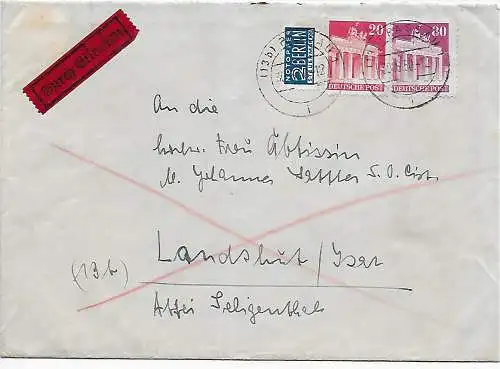 NOTOPFER
2 BERLIN
STEUERMARKE
20
DEUTSCHE POST
80
DEUTSCHE POST
(13b)
An die
hochw. Frau Äbtissin
M. Johanna S. O. Cist.
Landshut / Isar
(13b)
Abtei Seligenthal